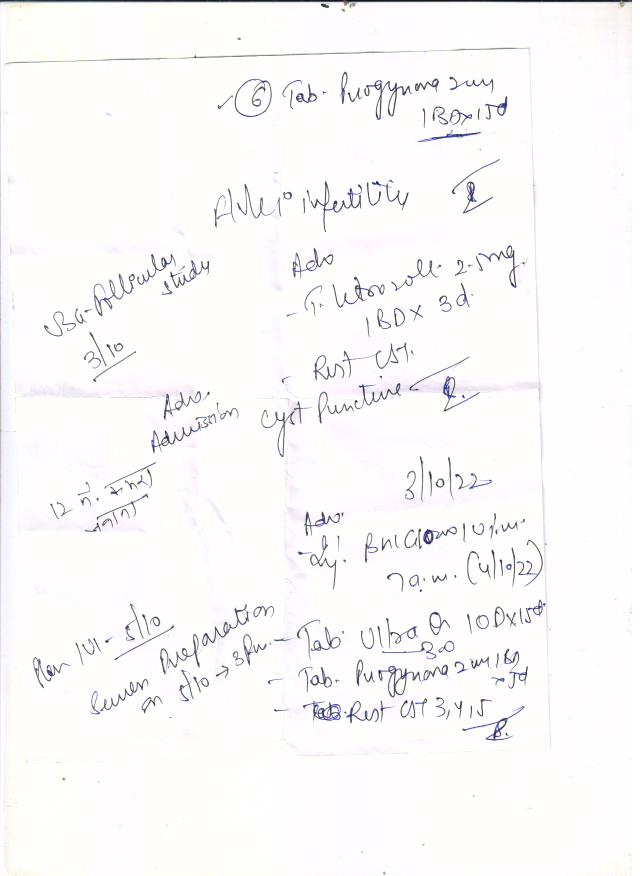 ⑥ Tab. Progynova 2mg
1BD x 15d
infertility
Adv
- T. Letrozole 2.5mg.
1BD x 3d.
- Rest CST.
follicular study
3/10
Adv.
Admission
Cyst Puncture
12 नं.
3/10/22
Adv.
- Inj. 10000 IU i.m.
7a.m. (4/10/22)
Plan IUI - 5/10
Semen Preparation
on 5/10 → 3Pm.
- Tab. Ultra Q 300 1OD x 15d.
- Tab. Progynova 2mg 1BD
x 5d
- Rest CST 3,4,5